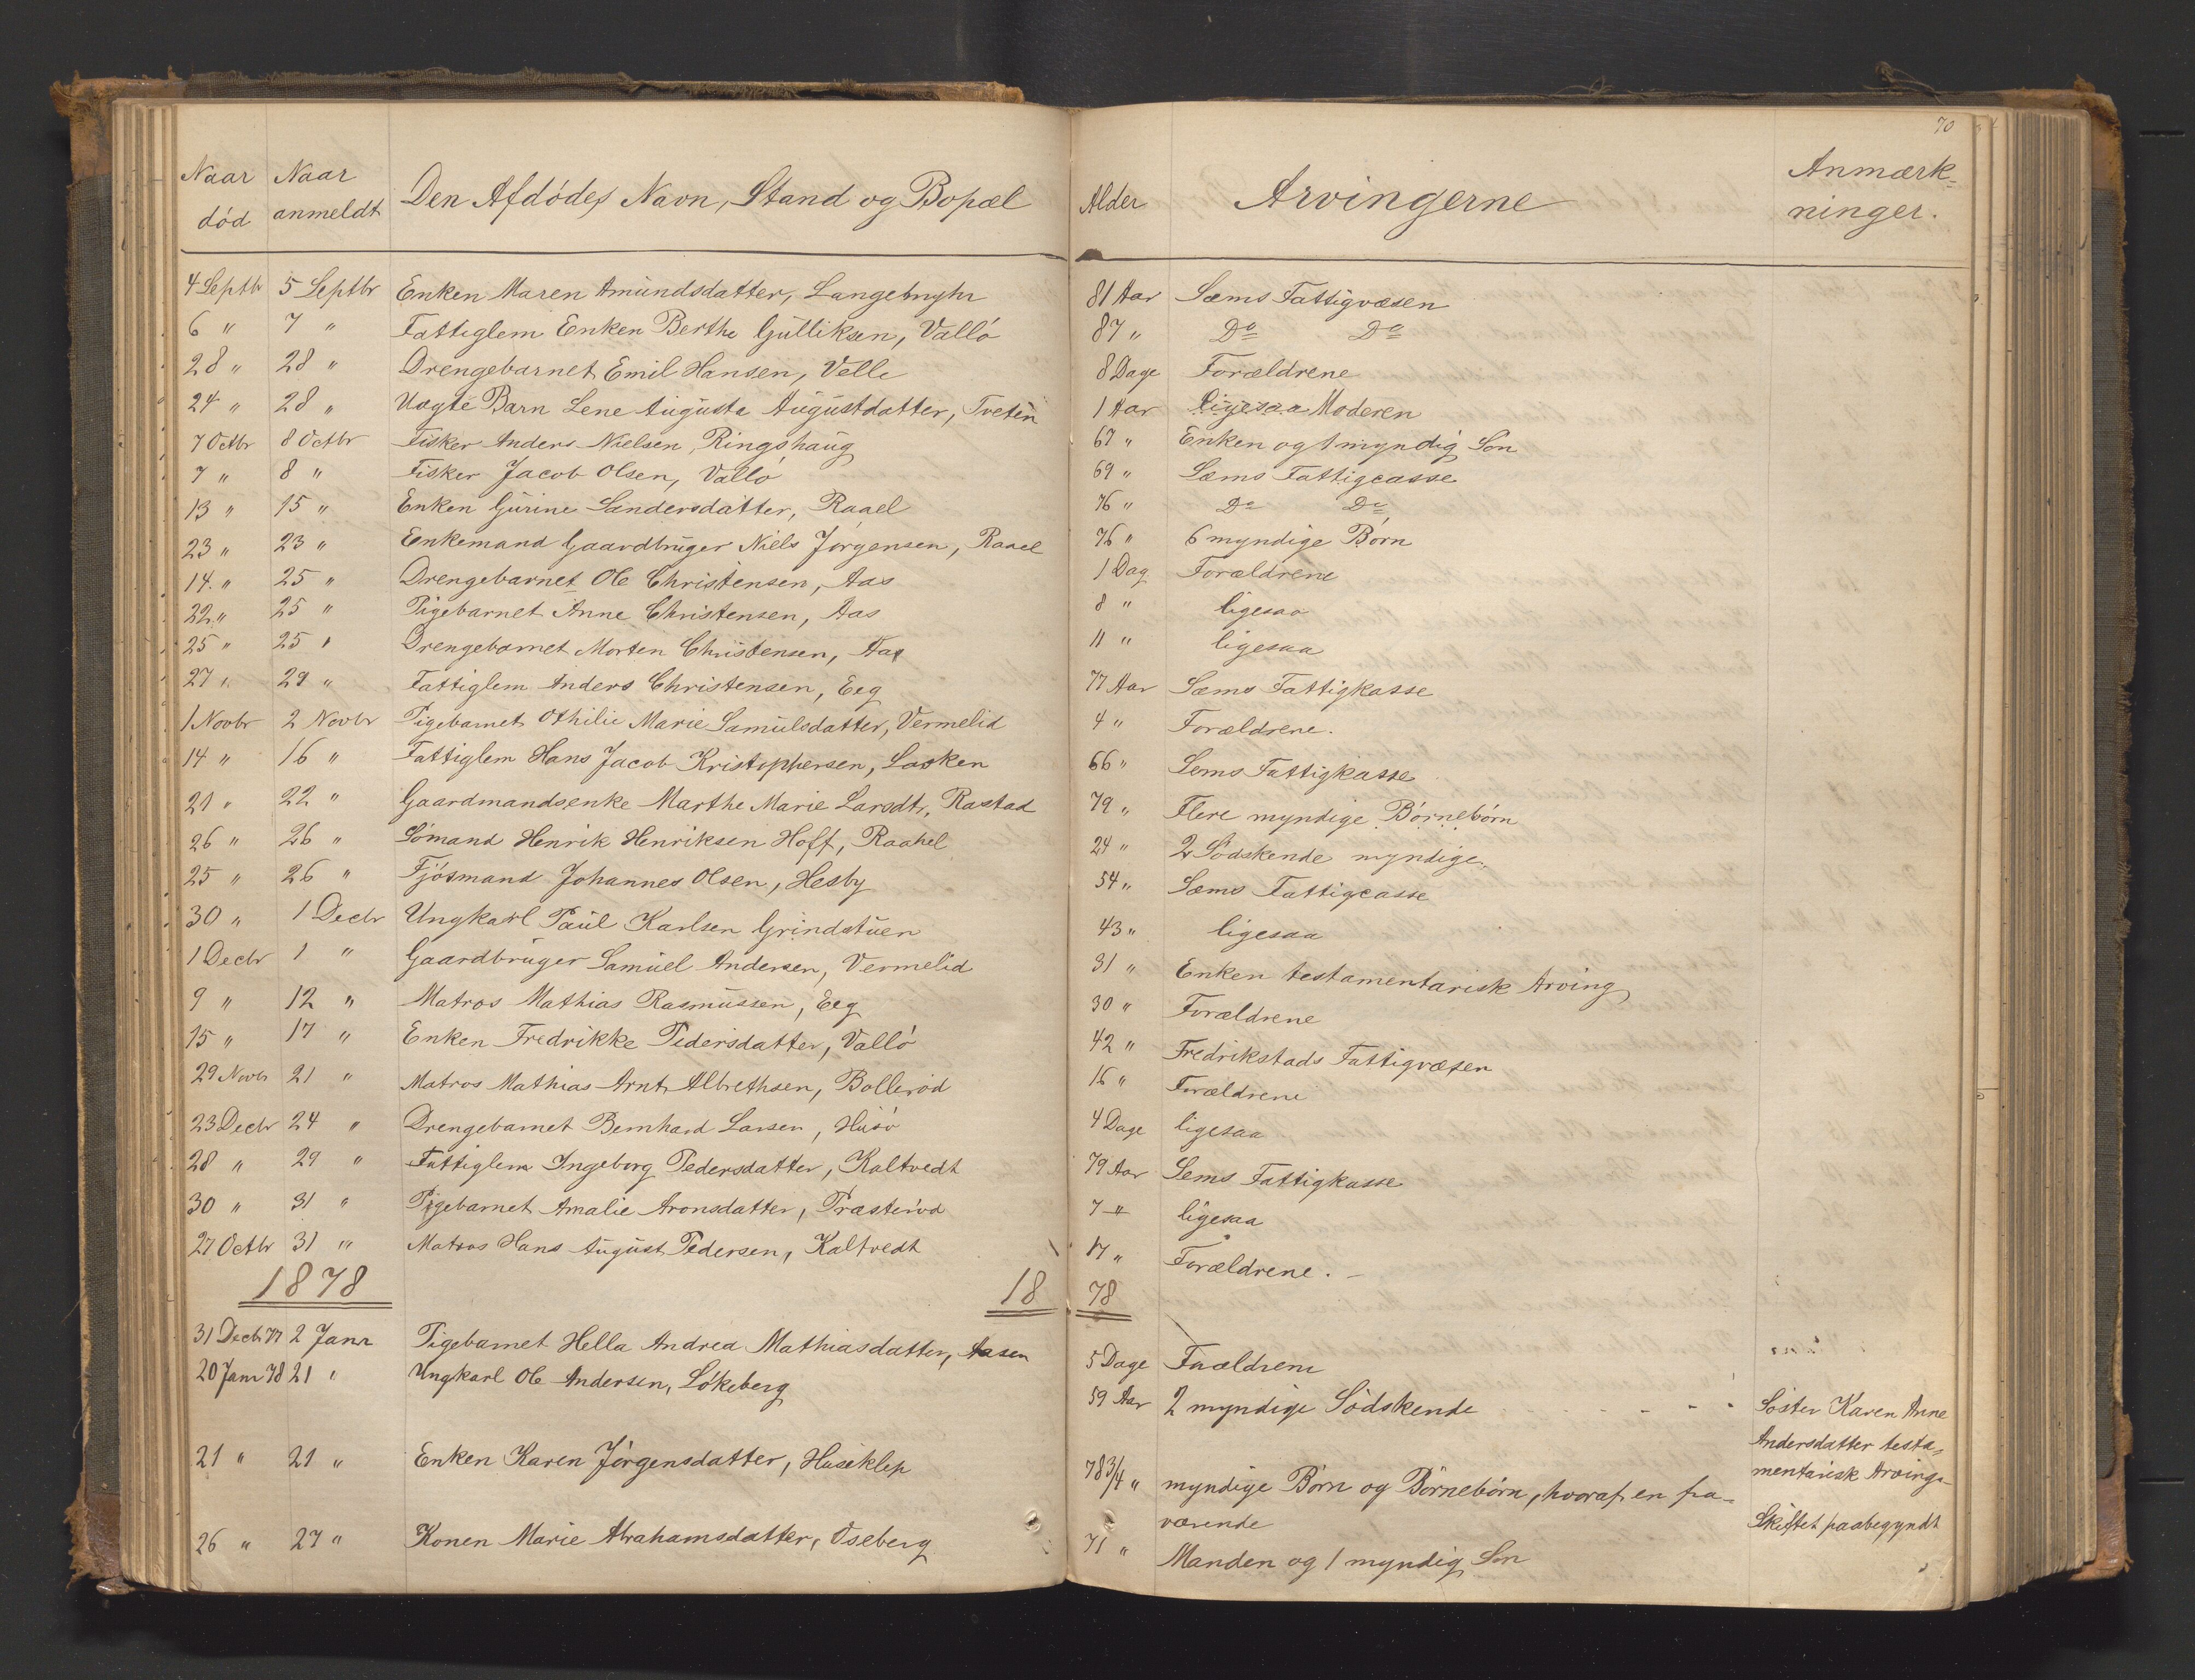 70
Naar død | Naar anmeldt | Den Afdødes Navn, Stand og Bopæl | Alder | Arvingerne | Anmærk=ninger.
4 Septbr | 5 Septbr | Enken Maren Amundsdatter, | 81 Aar | Sæms Fattigvæsen
6 " | 7 " | Fattiglem Enken Berthe Gulliksen, Valló | 87 " | Do Do
28 " | 28 " | Drengebarnet Emil Hansen, Velle | 8 Dage | Forældrene
24 " | 28 " | Uægte Barn Lene Augusta Augustdatter, Tveten | 1 Aar | ligesaa Moderen
7 Octbr | 8 Octbr | Fisker Anders Nielsen, Ringshaug | 67 " | Enken og 1 myndig Søn
7 " | 8 " | Fisker Jacob Olsen, Valló | 69 " | Sæms Fattigcasse
13 " | 15 " | Enken Gurine Sandersdatter, Raael | 76 " | Do Do
23 " | 23 " | Enkemand Gaardbruger Niels Jörgensen, Raael | 76 " | 6 myndige Børn
14. " | 25 " | Drengebarnet Ole Christensen, Aas | 1 Dag | Forældrene
22. " | 25 " | Pigebarnet Anne Christensen, Aas | 8 " | ligesaa
25 " | 25 " | Drengebarnet Morten Christensen, Aas | 11 " | ligesaa
27 " | 29 " | Fattiglem Anders Christensen, Eeg | 77 Aar | Sæms Fattigkasse
1 Novbr | 2 Novbr | Pigebarnet Othilie Marie Samulsdatter, Vermelid | 4 " | Forældrene.
14 " | 16 " | Fattiglem Hans Jacob Kristophersen, Lasken | 66 " | Sems Fattigkasse
21 " | 22 " | Gaardmandsenke Marthe Marie Larsdtr, Rastad | 79 " | Flere myndige Børnebørn
26 " | 26 " | Sömand Henrik Henriksen Hoff, Raahel | 24 " | 2 Södskende myndige.
25 " | 26 " | Fjösmand Johannes Olsen, Hesby | 54 " | Sæms Fattigcasse
30 " | 1 Decbr | Ungkarl Paul Karlsen Grindstuen | 43 " | ligesaa
1 Decbr | 1 " | Gaardbruger Samuel Andersen, Vermelid | 31 " | Enken testamentarisk Arving
9 " | 12 " | Matros Mathias Rasmussen, Eeg | 30 " | Forældrene
15 " | 17 " | Enken Fredrikke Pedersdatter, Valló | 42 " | Fredrikstads Fattigvæsen
29 Novbr | 21 " | Matros Mathias Arnt Albrethsen, Bolleröd | 16 " | Forældrene
23 Decbr | 24 " | Drengebarnet Bernhard Larsen, Husö | 4 Dage | ligesaa
28 " | 29 " | Fattiglem Ingeborg Pedersdatter, Kaltvedt | 79 Aar | Sems Fattigkasse
30 " | 31 " | Pigebarnet Amalie Aronsdatter, Præsteröd | 7 " | ligesaa
27 Octbr | 31 " | Matros Hans August Pedersen, Kaltvedt | 17 " | Forældrene. -
1878 | 18 78
31 Decbr 77 | 2 Janr | Pigebarnet Hella Andrea Mathiasdatter, Aasen | 5 Dage | Forældrene
20 Janr 78 | 21 " | Ungkarl Ole Andersen, Lökeberg | 59 Aar | 2 myndige Södskende - - - - | Söster Karen Anne
Andersdatter testa=
mentarisk Arving-
21 " | 21 " | Enken Karen Jörgensdatter, Huseklep | 78 3/4 " | myndige Børn og Børnebørn, hvoraf en fra=
værende | Skiftet paabegyndt
26 " | 27 " | Konen Marie Abrahamsdatter, Oseberg | 71 " | Manden og 1 myndig Søn